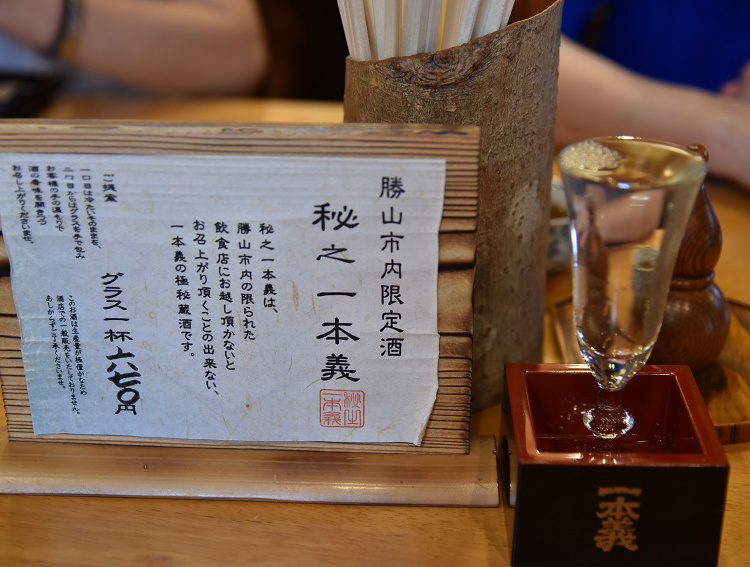 勝山市内限定酒
秘之一本義
秘之
一本義
秘之一本義は、
勝山市内の限られた
飲食店にお越し頂かないと
お召し上がり頂くことの出来ない、
一本義の極秘蔵酒です。
ご提案
一口目は冷たいそのままを、
二口目からはグラスを手で包み
お客様の手の温もりで
酒の香味を開きつつ
お召し上がりくださいませ。
グラス一杯六七〇円
このお酒は生産量が極僅かなため
酒店での一般販売をいたしておりません。
あしからずご了承くださいませ。
一本義